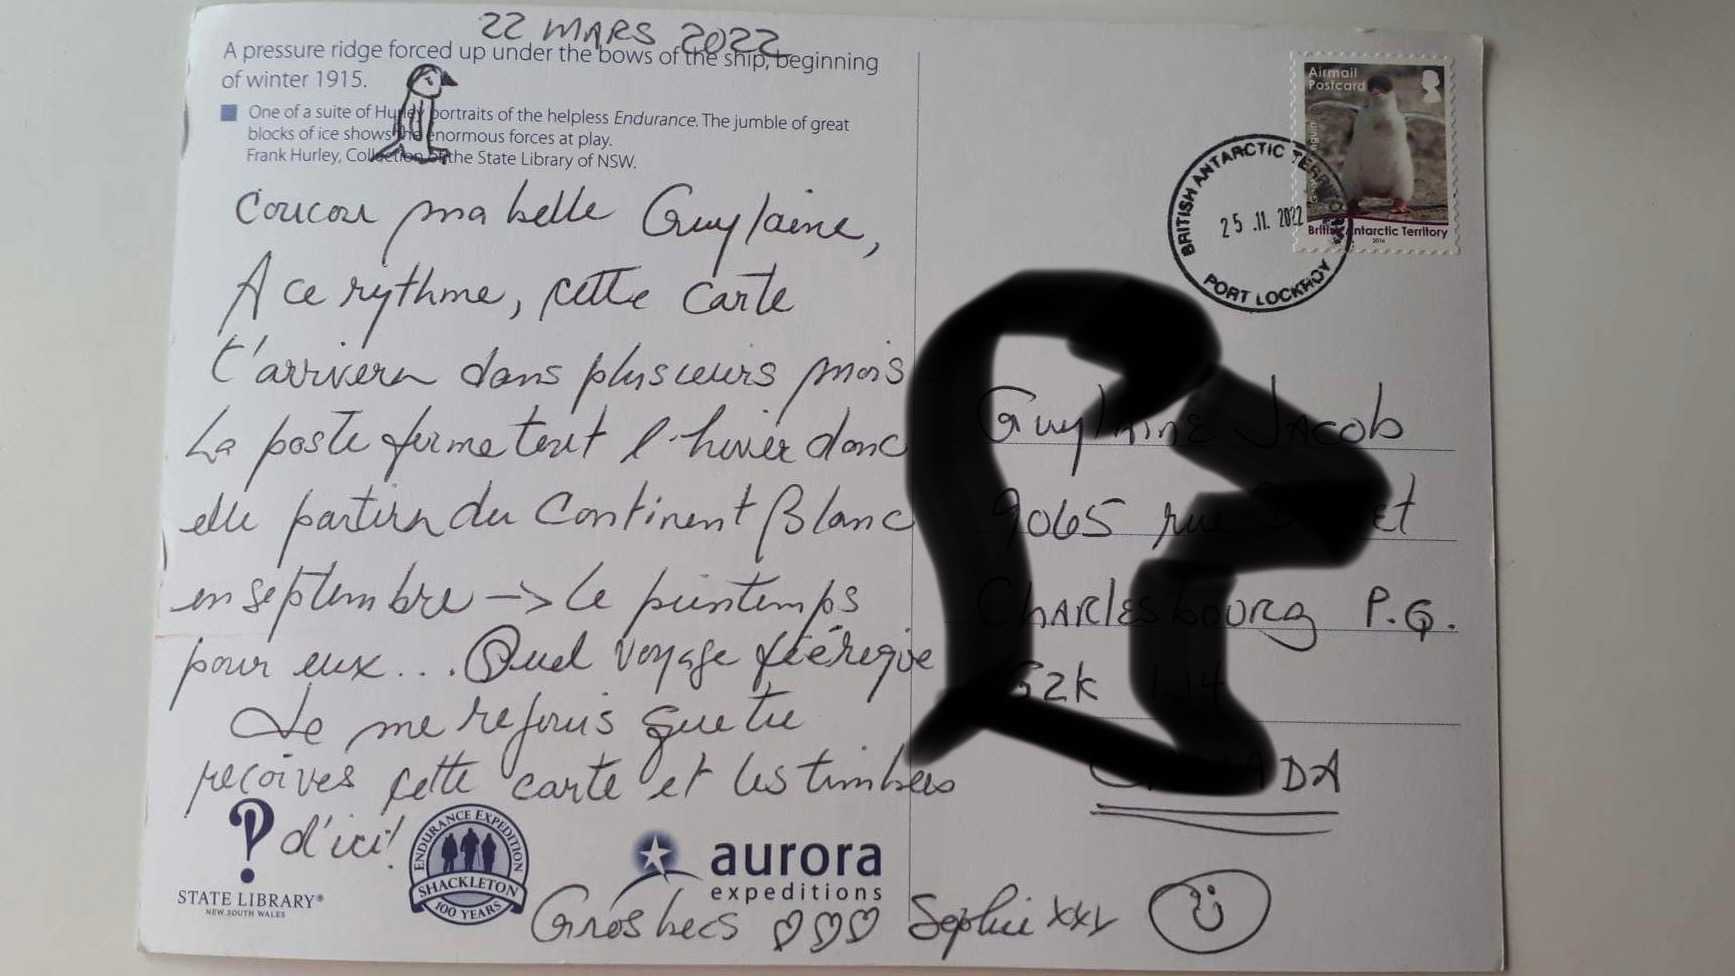 22 MARS 2022
A pressure ridge forced up under the bows of the ship, beginning
of winter 1915.
One of a suite of Hurley portraits of the helpless Endurance. The jumble of great
blocks of ice shows the enormous forces at play.
Frank Hurley, Collection of the State Library of NSW.
Coucou ma belle Guylaine,
A ce rythme, cette carte
t'arrivera dans plusieurs mois
La poste ferme tout l'hiver donc
elle partira du Continent Blanc
en septembre -> Le printemps
pour eux... Quel voyage féérique
Je me rejouis que tu
reçoives cette carte et les timbres
d'ici!
STATE LIBRARY®
NEW SOUTH WALES
ENDURANCE EXPEDITION
SHACKLETON
100 YEARS
aurora
expeditions
Gros becs ♡♡♡ Sophie xxx
Airmail
Postcard
British Antarctic Territory
2016
BRITISH ANTARCTIC TERRITORY
25 .11. 2022
PORT LOCKROY
P.Q.